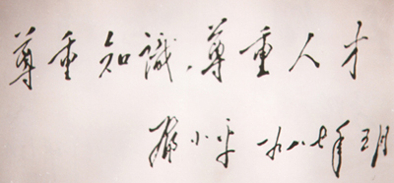 尊重知識、尊重人才
鄧小平 一九八七年五月